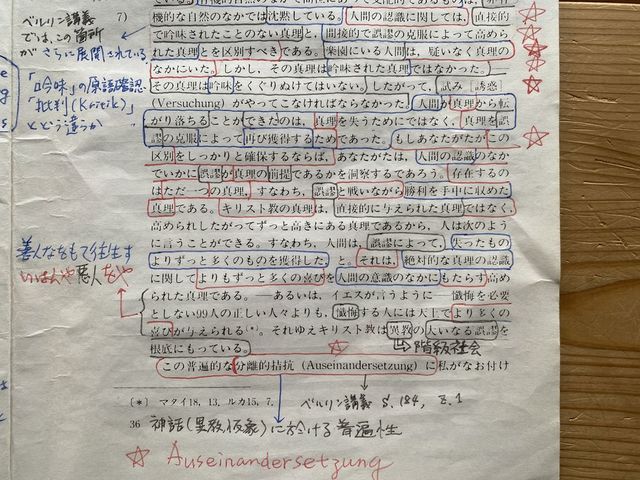 機的な自然のなかでは沈黙している。人間の認識に関しては、直接的
で吟味されたことのない真理と、間接的で誤謬の克服によって高めら
れた真理とを区別すべきである。楽園にいる人間は、疑いなく真理の
なかにいた。しかし、その真理は吟味された真理ではなかった。——
その真理は吟味をくぐりぬけてはいない。したがって、試み〔誘惑〕
(Versuchung) がやってこなければならなかった。人間が真理から転
がり落ちることができたのは、真理を失うためにではなく、真理を誤
謬の克服によって再び獲得するためであった。もしあなたがたがこの
区別をしっかりと確保するならば、あなたがたは、人間の認識のなか
でいかに誤謬が真理の前提であるかを洞察するであろう。存在するの
はただ一つの真理、すなわち、誤謬と戦いながら勝利を手中に収めた
真理である。キリスト教の真理は、直接的に与えられた真理ではなく、
高められしたがってずっと高きにある真理であるから、人は次のよう
に言うことができる。すなわち、人間は、誤謬によって、失ったもの
よりずっと多くのものを獲得した、と。それは、絶対的な真理の認識
に関してよりもずっと多くの喜びを人間の意識のなかにもたらす高め
られた真理である。——あるいは、イエスが言うように——懺悔を必要
としない99人の正しい人々よりも、懺悔する人には天上でより多くの
喜びが与えられる(*)。それゆえキリスト教は異教の大いなる誤謬を
根底にもっている。
この普遍的な分離的拮抗 (Auseinandersetzung) に私がなお付け
〔*〕 マタイ18, 13, ルカ15, 7.
36
7)
ベルリン講義
では、この箇所
が さらに展開されている
「吟味」の原語確認
「批判 (Kritik)」
とどう違うか
善人なをもて往生す
いはんや悪人をや
階級社会
ベルリン講義 S. 184, Z. 1
神話(異教, 仮象)に於ける普遍性
☆ Auseinandersetzung